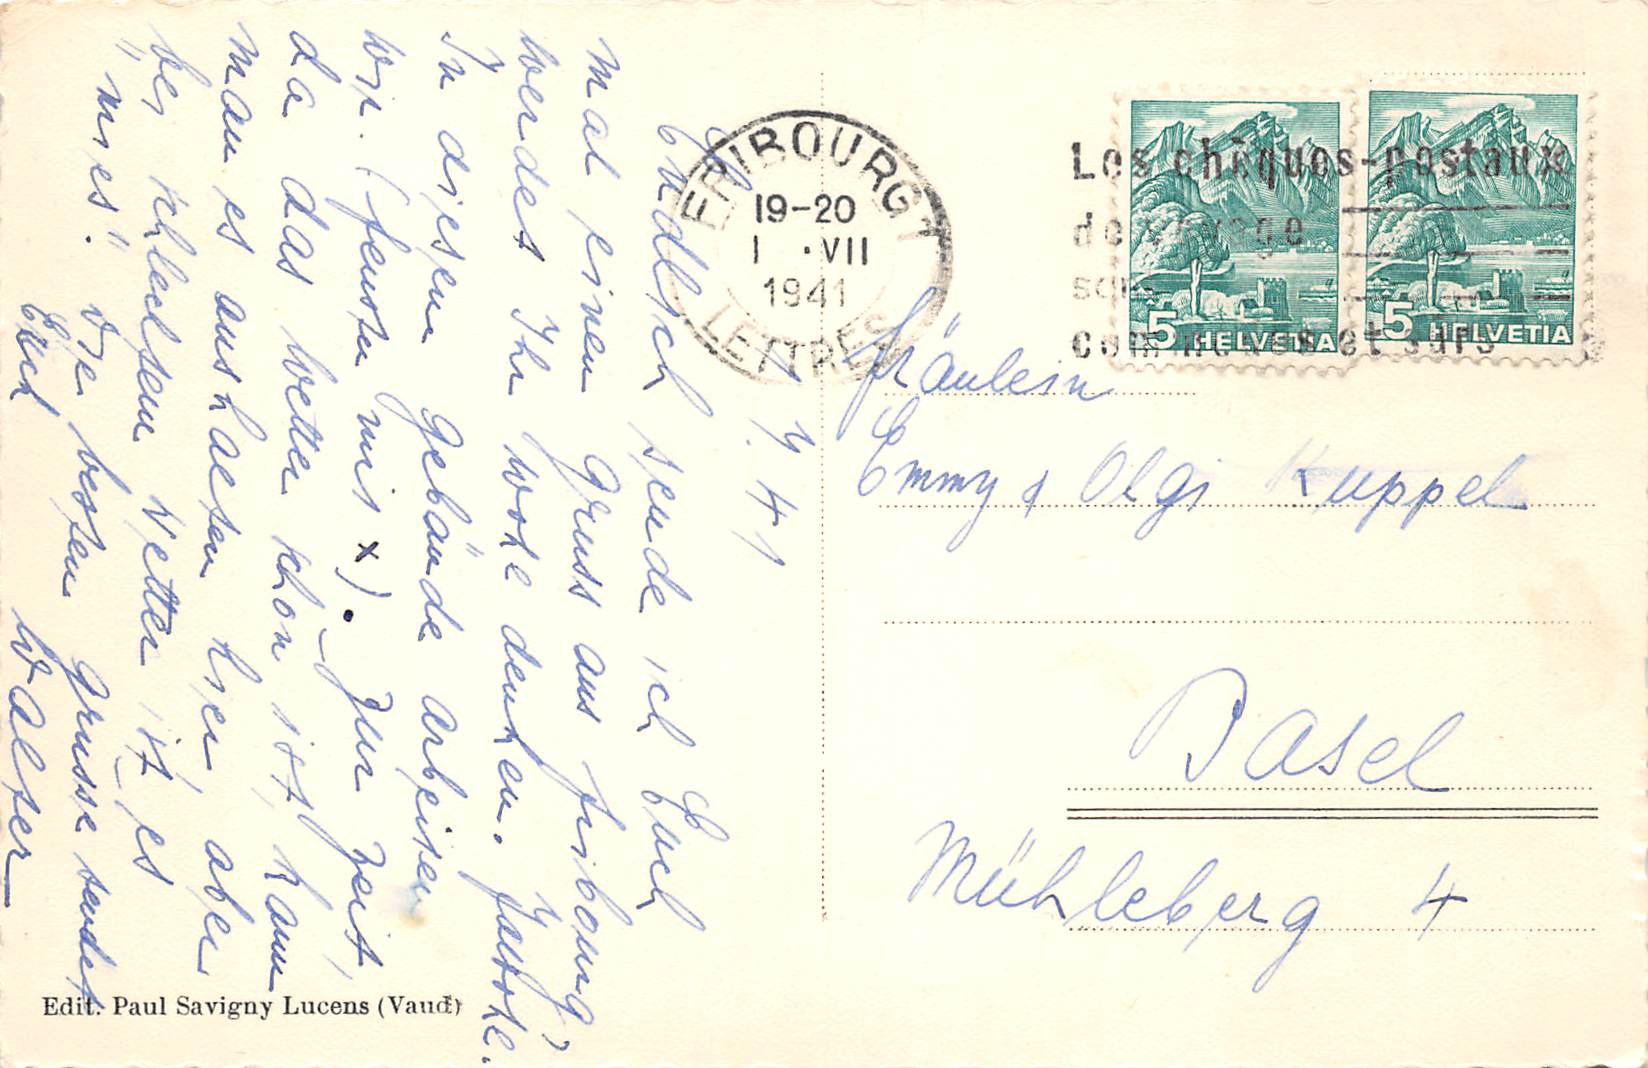 1. 7. 41
Endlich sende ich Euch
mal einen Gruss aus Fribourg,
werdet Ihr wohl denken.
In diesem Gebäude arbeiten
wir. (Fenster mit x). Zur Zeit,
da das Wetter schön ist, kann
man es aushalten hier, aber
bei schlechtem Wetter ist es
"mies". Die besten Grüsse sendet
Euch Walter
Edit. Paul Savigny Lucens (Vaud)
FRIBOURG 1
19-20
1 .VII
1941
LETTRES
Les chèques-postaux
de voyage
sont
commodes et sûrs
5 HELVETIA
5 HELVETIA
Fräulein
Emmy & Olgi Kuppel
Basel
Mühleberg 4